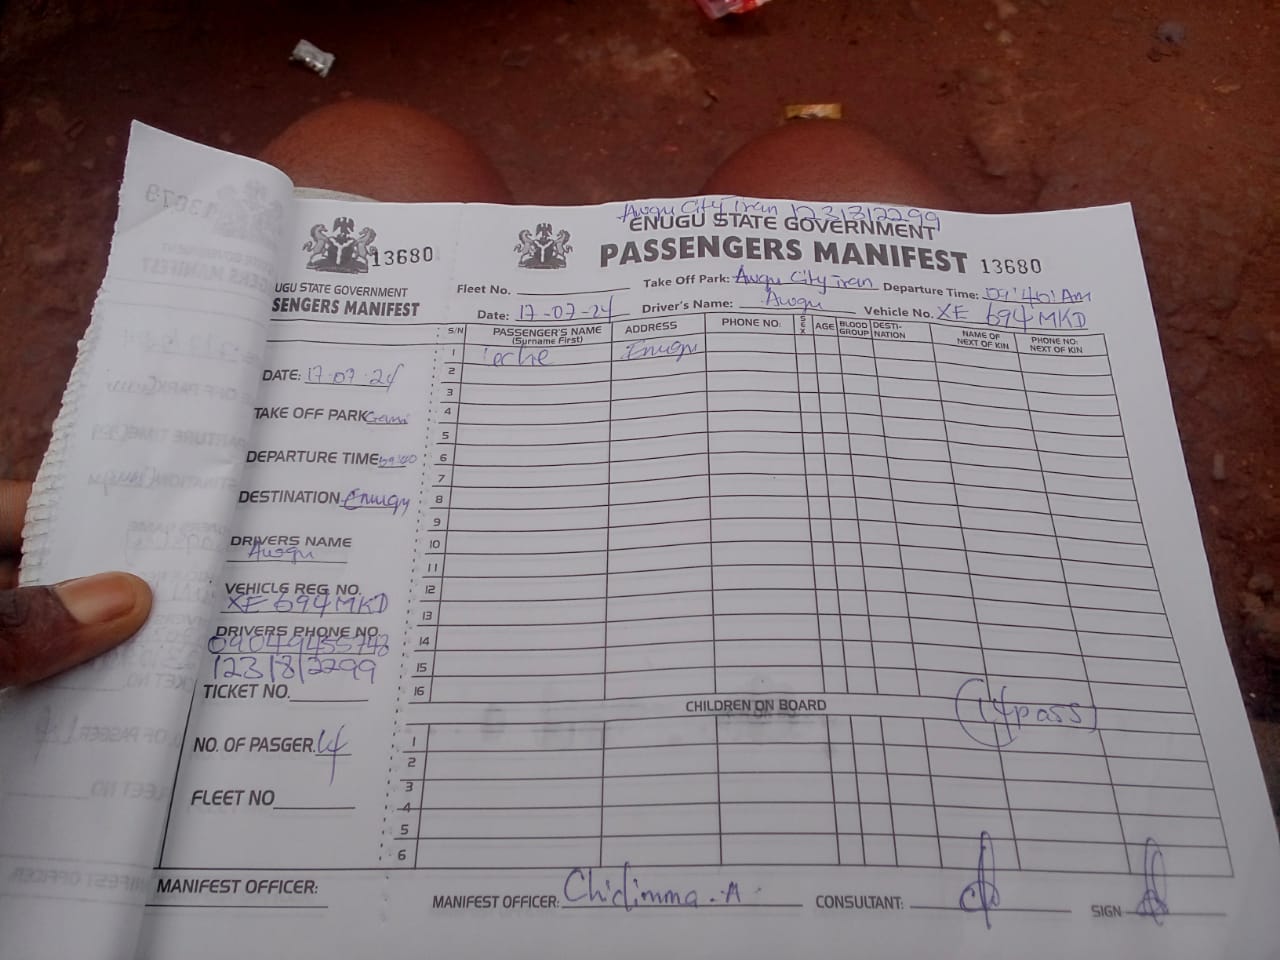 13680
UGU STATE GOVERNMENT
SENGERS MANIFEST
DATE: 17-07-24
TAKE OFF PARK
DEPARTURE TIME
DESTINATION Enugu
DRIVERS NAME
Awgu
VEHICLE REG NO.
XE 694 MKD
DRIVERS PHONE NO.
1231812299
TICKET NO.
NO. OF PASGER. 14
FLEET NO
MANIFEST OFFICER:
Awgu City Tran 1231812299
ENUGU STATE GOVERNMENT
PASSENGERS MANIFEST 13680
Fleet No. Take Off Park: Awgu City Tran Departure Time: 09:40 AM
Date: 17-07-24 Driver's Name: Awgu Vehicle No. XE 694 MKD
S/N PASSENGER'S NAME (Surname First) ADDRESS PHONE NO: SEX AGE BLOOD GROUP DESTI-NATION NAME OF NEXT OF KIN PHONE NO: NEXT OF KIN
1 Enugu
2
3
4
5
6
7
8
9
10
11
12
13
14
15
16
CHILDREN ON BOARD
(14 pass)
1
2
3
4
5
6
MANIFEST OFFICER: Chidimma .A. CONSULTANT: SIGN